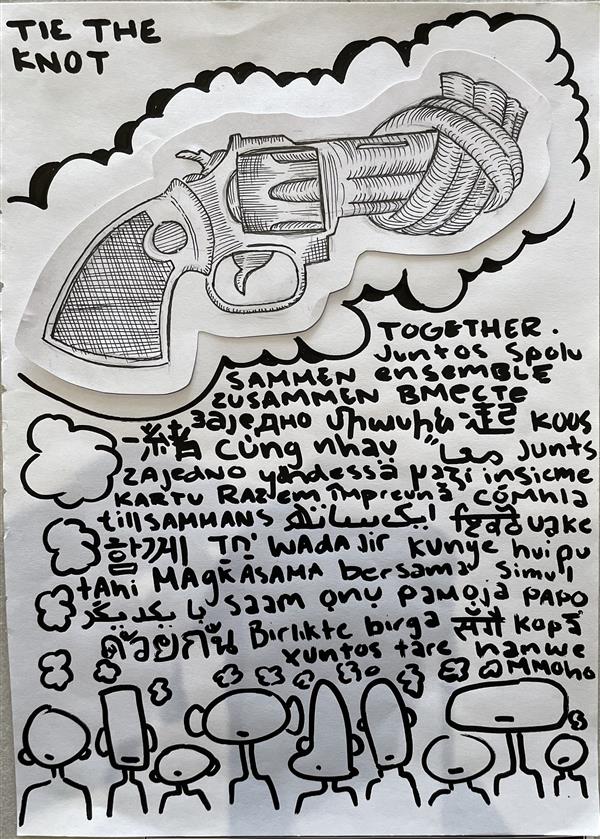 TIE THE
KNOT
TOGETHER.
Juntos Spolu
SAMMEN ensemble
ZUSAMMEN ВМЕСТЕ
Заједно միասին 一起 KOOS
一緒 cùng nhau معا Junts
ZAJEDNO yhdessä μαζί insieme
KARTU RAZem împreună cómhla
tillSAMMANS ایک ساتھ uake
함께 WADAJir Kunye huipu
tAhi MAgKASAMA bersama Simul
با یکدیگر saam ọnụ pamoja PAPO
ด้วยกัน Birlikte birga kopā
xuntos tare hanwe
MMoho